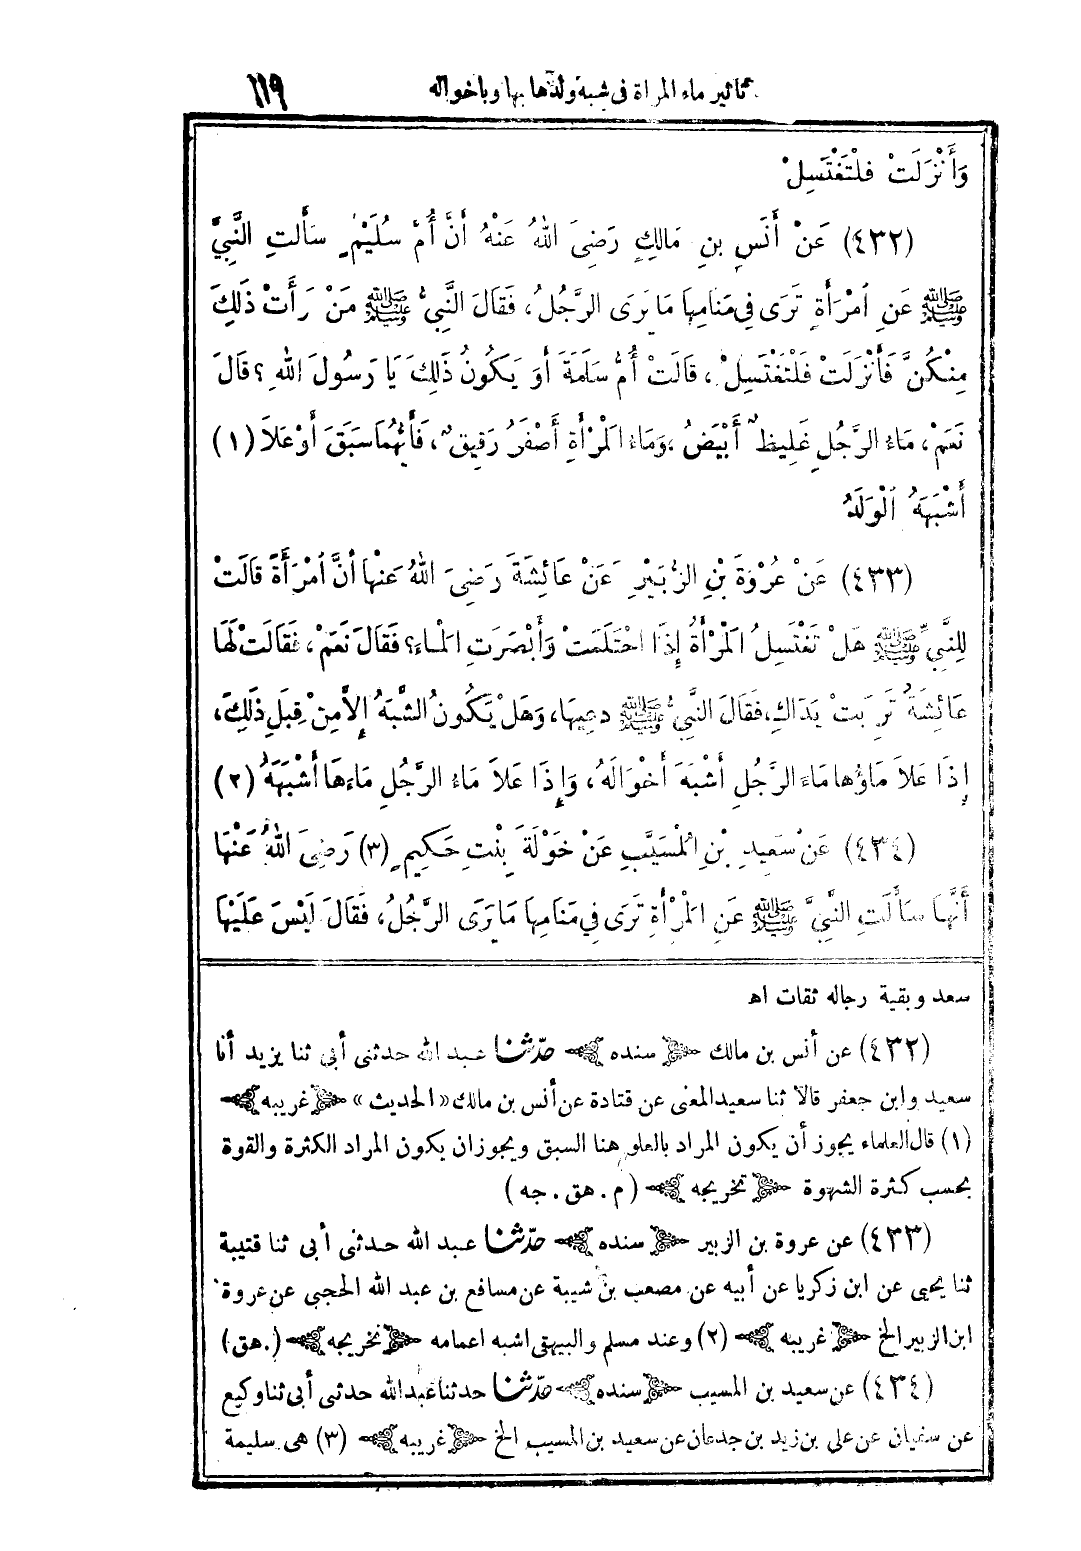 تأثير ماء المرأة فى شبه ولدها بها وبأخواله ١١٩
وَأَنْزَلَتْ فلتَغْتَسِلْ
(٤٣٢) عَنْ أَنَسِ بنِ مَالِكٍ رَضِىَ اللهُ عَنْهُ أَنَّ أُمَّ سُلَيْمٍ سَأَلتِ النَّبِيَّ
ﷺ عَنِ اُمْرَأَةٍ تَرَى فِي مَنامِها مَا يَرَى الرَّجُلُ، فَقَالَ النَّبِيُّ ﷺ مَنْ رَأَتْ ذَلِكَ
مِنْكُنَّ فَأَنْزَلَتْ فَلْتَغْتَسِلْ، قَالَتْ أُمُّ سَلَمَةَ أَوَ يَكُونُ ذَلِكَ يَا رَسُولَ اللهِ؟ قَالَ
نَعَمْ، مَاءُ الرَّجُلِ غَلِيظٌ أَبْيَضُ، وَمَاءُ الَمْرْأَةِ أَصْفَرُ رَقِيقٌ، فَأَيُّهُمَا سَبَقَ أَوْ عَلاَ (١)
أَشْبَهَهُ اُلْوَلَدُ
(٤٣٣) عَنْ عُرْوَةَ بْنِ الزُّبَيْرِ عَنْ عَائِشَةَ رَضِىَ اللهُ عَنْها أَنَّ اُمْرَأَةً قَالَتْ
لِلنَّبِيِّ ﷺ هَلْ تَغْتَسِلُ الَمْرْأَةُ إِذَا احْتَلَمَتْ وَأَبْصَرَتِ الَماءَ؟ فَقَالَ نَعَمْ، فَقَالَتْ لَهَا
عَائِشَةُ تَرِبَتْ يَدَاكِ، فَقَالَ النَّبِيُّ ﷺ دعِيهَا، وَهَلْ يَكُونُ الشَّبَهُ إِلاَّ مِنْ قِبَلِ ذَلِكَ،
إِذَا عَلاَ مَاؤُها مَاءَ الرَّجُلِ أَشْبَهَ أَخْوَالَهُ، وَإِذَا عَلاَ مَاءُ الرَّجُلِ مَاءَهَا أَشْبَهَهُ (٢)
(٤٣٤) عَنْ سَعِيدِ بْنِ اُلْمسَيَّبِ عَنْ خَوْلَةَ بِنْتِ حَكِيمٍ (٣) رَضِىَ اللهُ عَنْهَا
أَنَّهَا سَأَلَتِ النَّبِيَّ ﷺ عَنِ الَمْرْأَةِ تَرَى فِي مَنَامِها مَا يَرَى الرَّجُلُ، فَقَالَ لَيْسَ عَلَيْهَا
سعد وبقية رجاله ثقات اهـ
(٤٣٢) عن أنس بن مالك ﴿ سنده ﴾ حدّثنا عبد الله حدثنى أبى ثنا يزيد أنا
سعيد وابن جعفر قالا ثنا سعيد المعنى عن قتادة عن أنس بن مالك « الحديث » ﴿ غريبه ﴾
(١) قال العلماء يجوز أن يكون المراد بالعلو هنا السبق ويجوز ان يكون المراد الكثرة والقوة
بحسب كثرة الشهوة ﴿ تخريجه ﴾ ( م . هق . جه )
(٤٣٣) عن عروة بن الزبير ﴿ سنده ﴾ حدّثنا عبد الله حدثنى أبى ثنا قتيبة
ثنا يحيى عن ابن زكريا عن أبيه عن مصعب بن شيبة عن مسافع بن عبد الله الحجبى عن عروة
ابن الزبير الخ ﴿ غريبه ﴾ (٢) وعند مسلم والبيهقى اشبه اعمامه ﴿ تخريجه ﴾ (. هق)
(٤٣٤) عن سعيد بن المسيب ﴿ سنده ﴾ حدّثنا حدثنا عبد الله حدثنى أبى ثنا وكيع
عن سفيان عن على بن زيد بن جدعان عن سعيد بن المسيب الخ ﴿ غريبه ﴾ (٣) هى سليمة